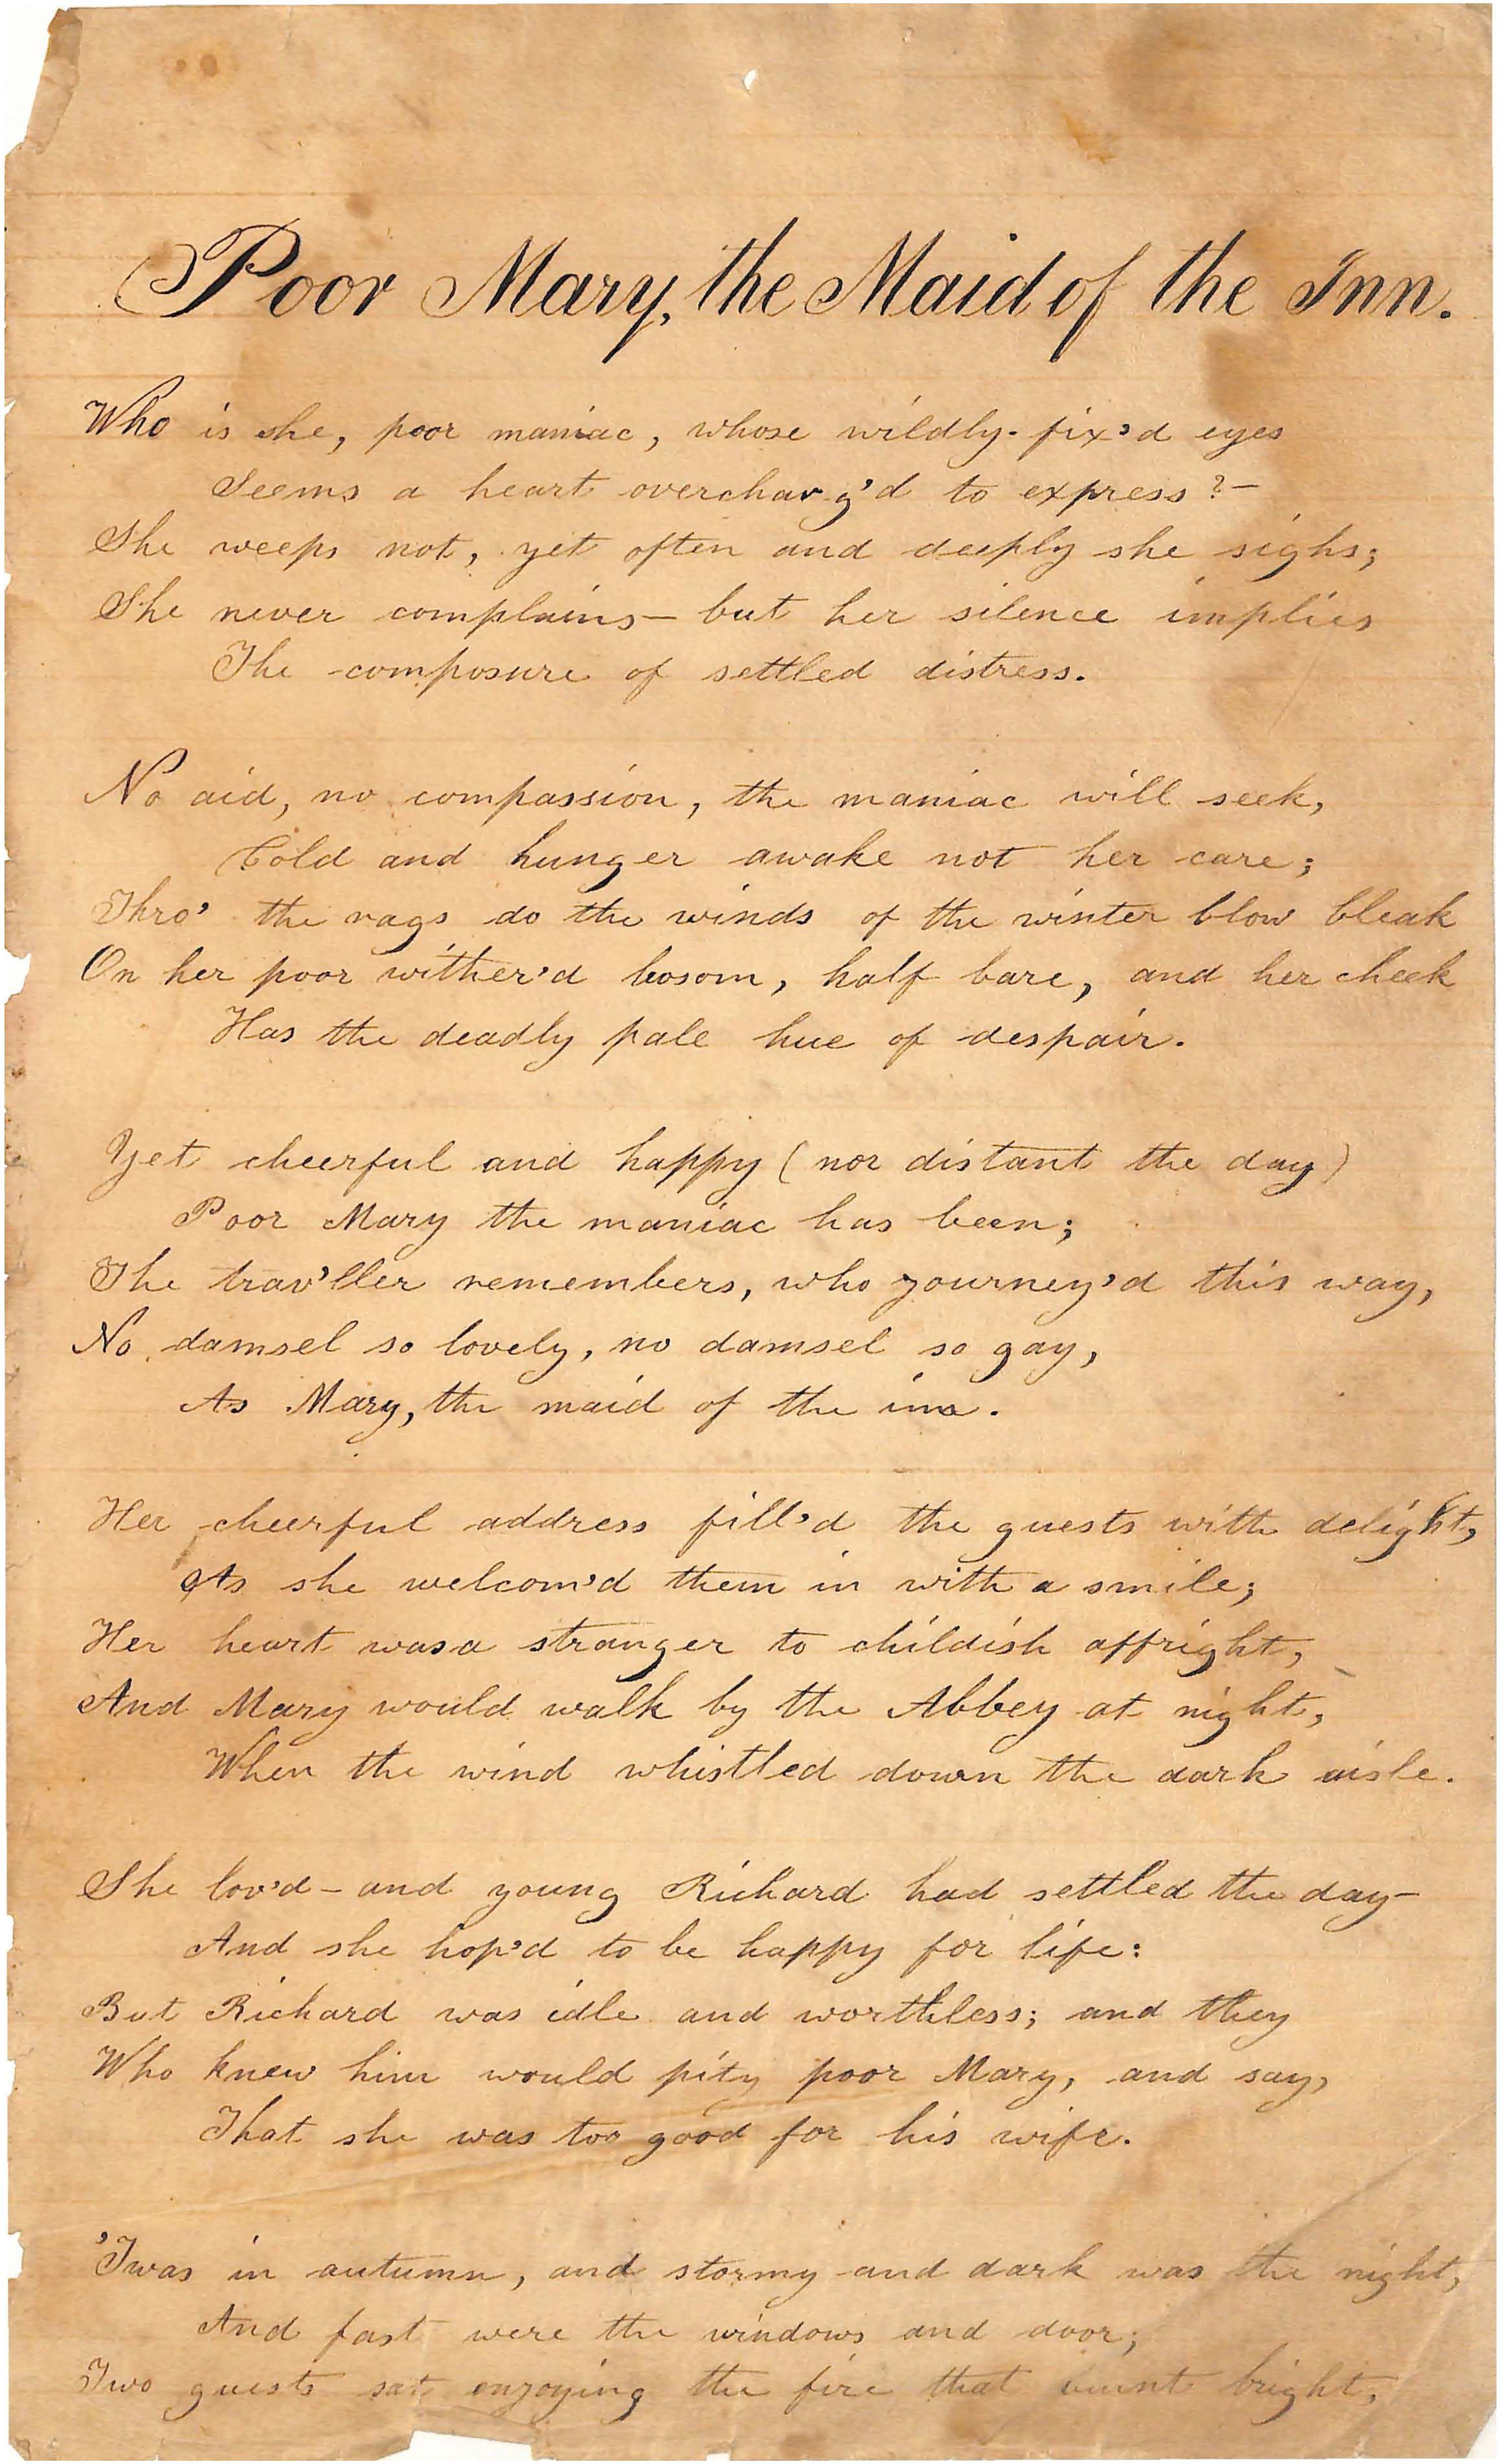 Poor Mary, the Maid of the Inn.
Who is she, poor maniac, whose wildly-fix'd eyes
Seems a heart overcharg'd to express?—
She weeps not, yet often and deeply she sighs;
She never complains— but her silence implies
The composure of settled distress.
No aid, no compassion, the maniac will seek,
Cold and hunger awake not her care;
Thro' the rags do the winds of the winter blow bleak
On her poor wither'd bosom, half bare, and her cheek
Has the deadly pale hue of despair.
Yet cheerful and happy (nor distant the day)
Poor Mary the maniac has been;
The trav'ller remembers, who journey'd this way,
No damsel so lovely, no damsel so gay,
As Mary, the maid of the inn.
Her cheerful address fill'd the guests with delight,
As she welcom'd them in with a smile;
Her heart was a stranger to childish affright,
And Mary would walk by the Abbey at night,
When the wind whistled down the dark aisle.
She lov'd— and young Richard had settled the day—
And she hop'd to be happy for life:
But Richard was idle and worthless; and they
Who knew him would pity poor Mary, and say,
That she was too good for his wife.
'Twas in autumn, and stormy and dark was the night,
And fast were the windows and door;
Two guests sat enjoying the fire that burnt bright,